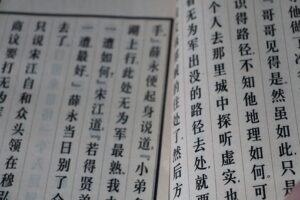 『哥哥见得是然虽如此只
识得路径不知他地理如何可
个人去那里城中探听虚实也
无为军出没的路径去处就要
的住处了然后方
手。』薛永便起身说道『小弟
湖上行此处无为军最熟我
一遭如何』宋江道『若得贤
一遭最好』薛永当日别了
去了
只说宋江自和众头领在穆弘
商议要打无为